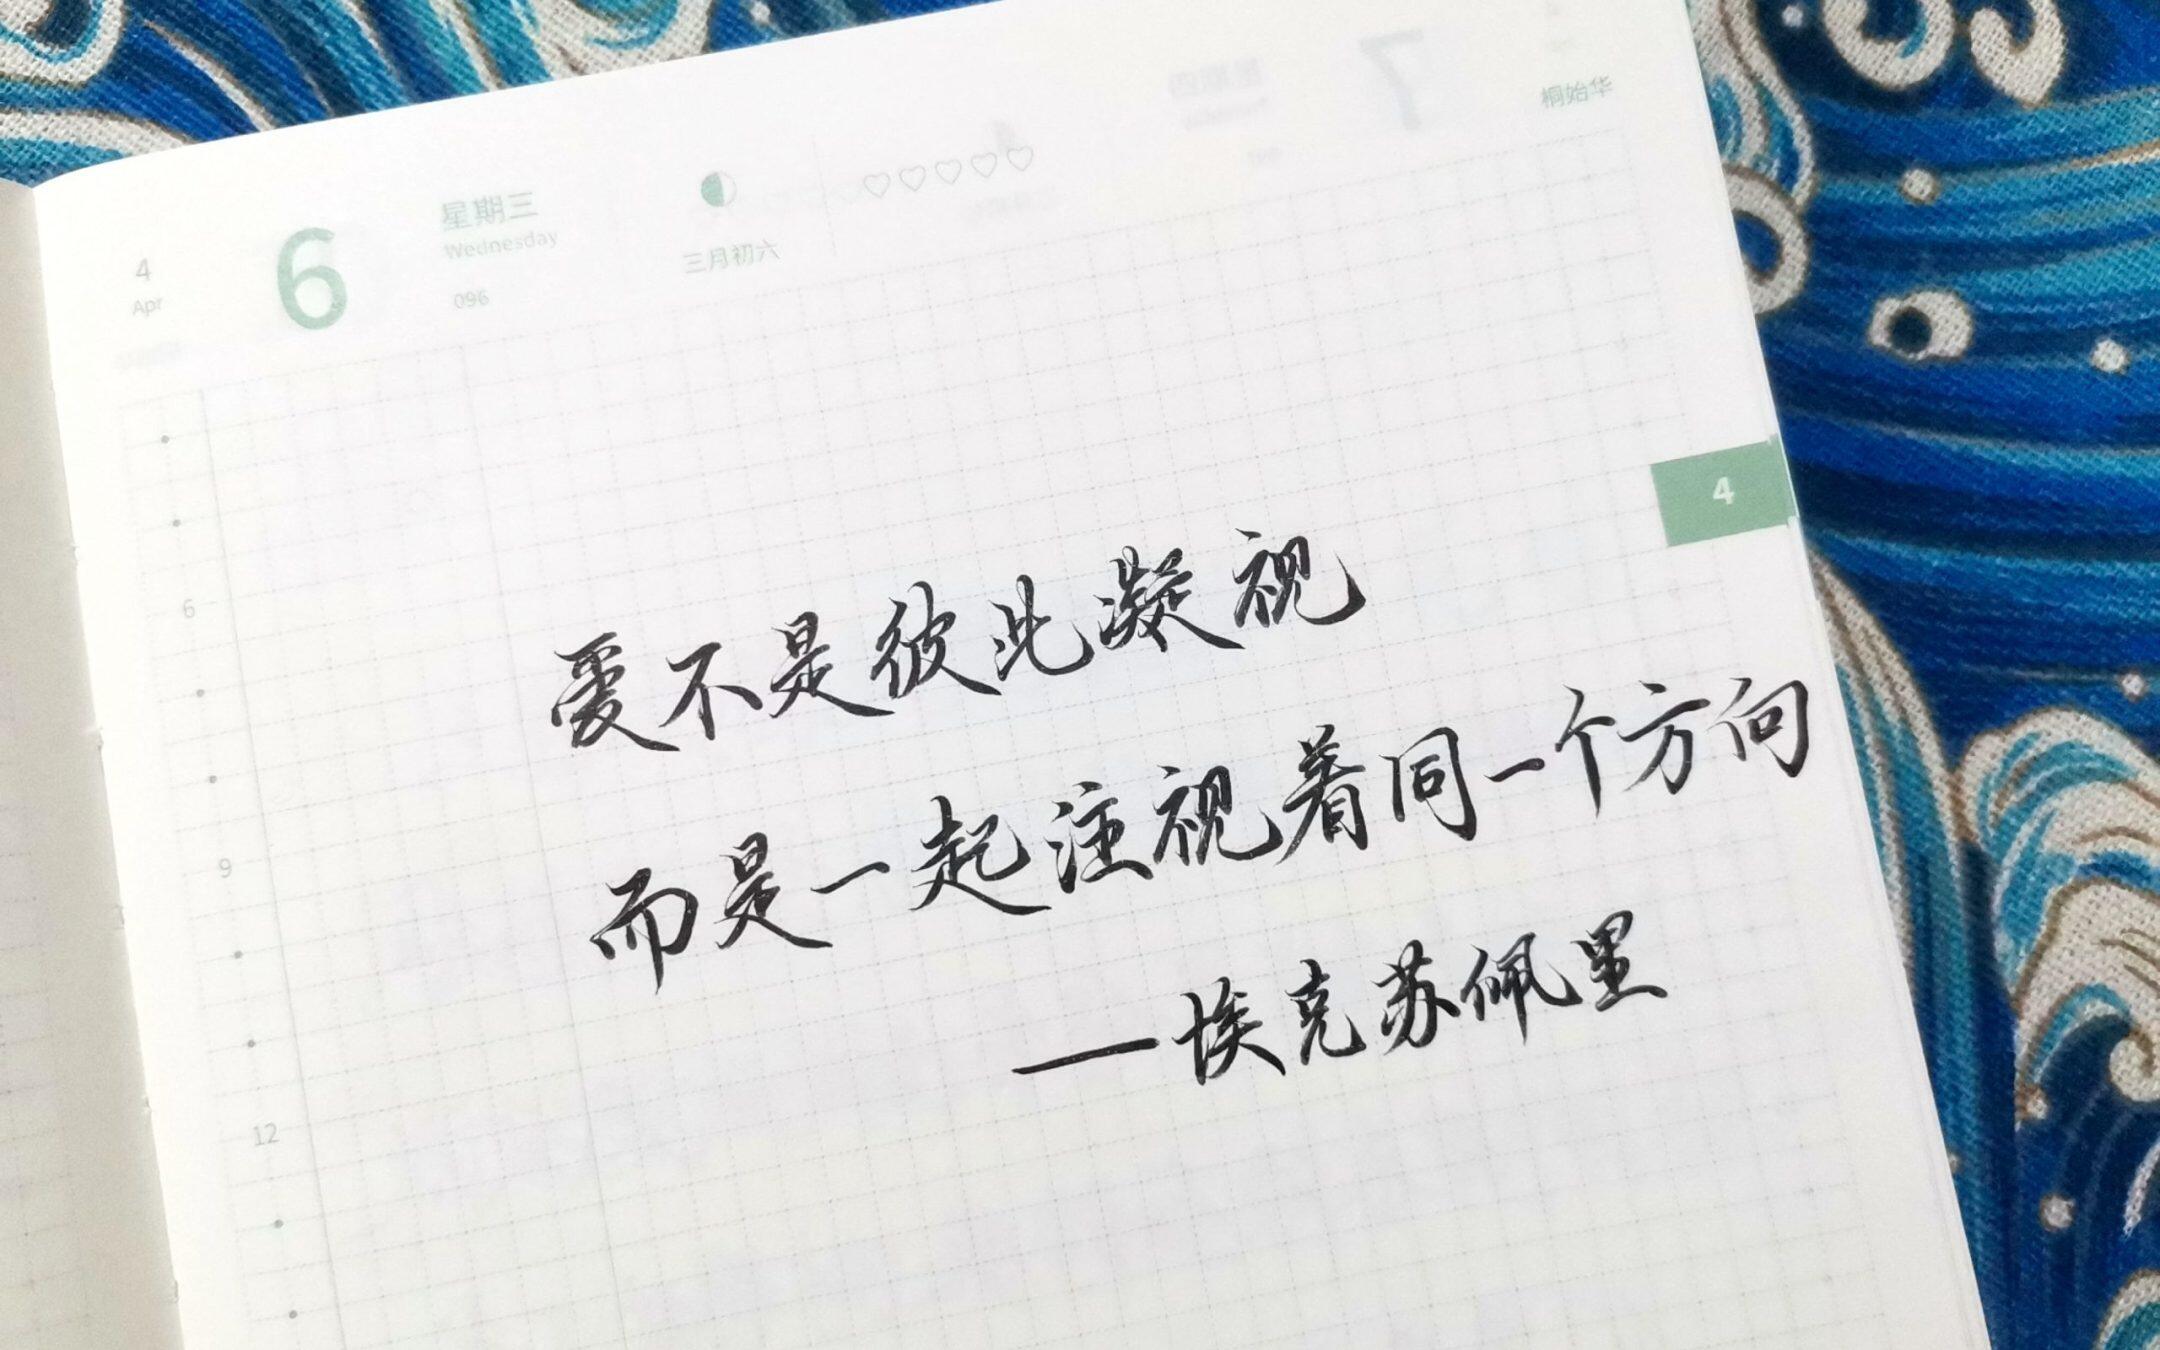 4
Apr
6
星期三
Wednesday
096
三月初六
桐始华
4
6
9
12
爱不是彼此凝视
而是一起注视着同一个方向
——埃克苏佩里